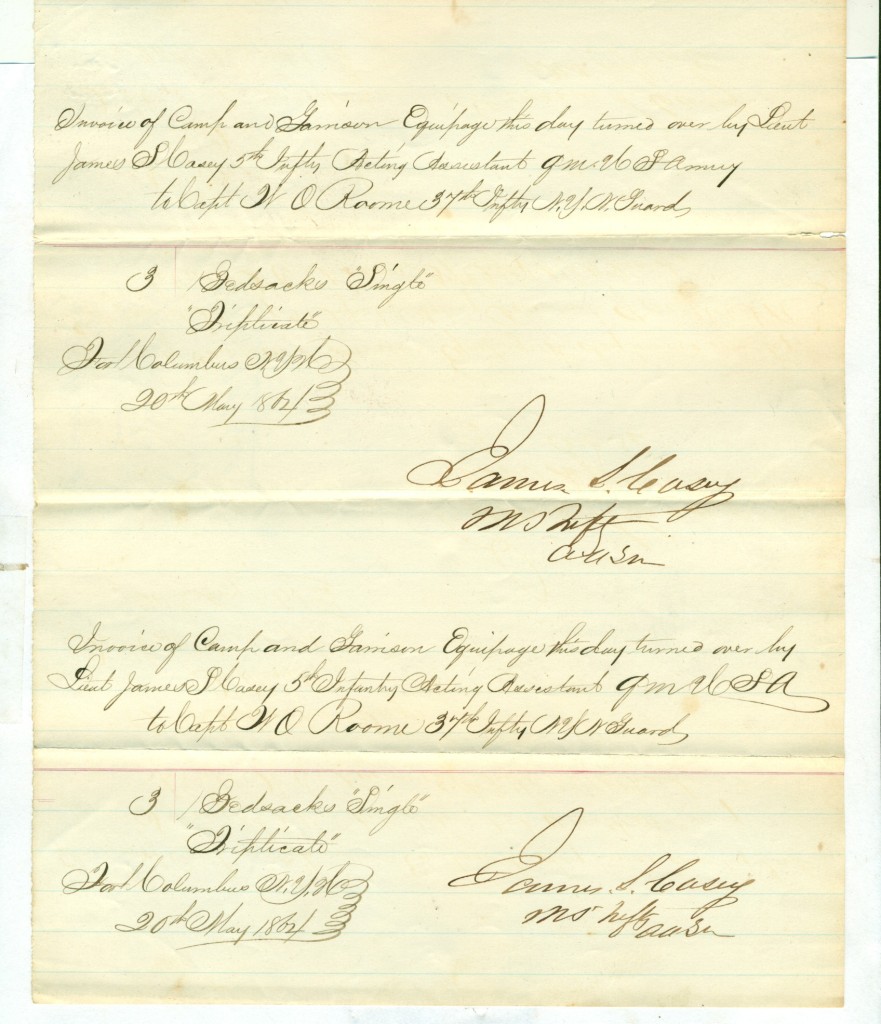 Invoice of Camp and Garrison Equipage this day turned over by Lieut
James S Casey 5th Infty Acting Assistant Q M U S Army
to Capt W O Roome 37th Infty N.Y.N. Guard
3 Bedsacks "Single"
"Triplicate"
Fort Columbus N.Y.H
20th May 1864
James S. Casey
Invoice of Camp and Garrison Equipage this day turned over by
Lieut James S Casey 5th Infantry Acting Assistant Q M U S A
to Capt W O Roome 37th Infty N Y N Guard
3 Bedsacks "Single"
"Triplicate"
Fort Columbus N.Y.H
20th May 1864
James S. Casey